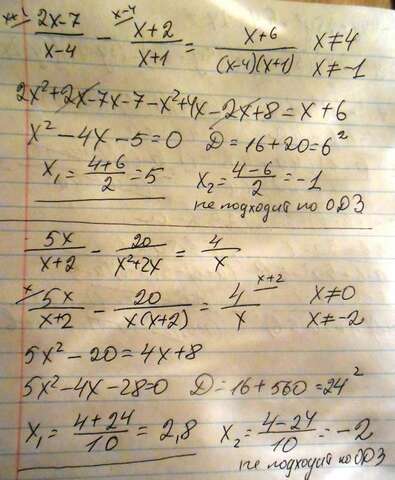 x+1 (2x-7)/(x-4) - x-4 (x+2)/(x+1) = (x+6)/((x-4)(x+1)) x≠4
x≠-1
2x²+2x-7x-7-x²+4x-2x+8=x+6
x²-4x-5=0 D=16+20=6²
x₁=(4+6)/2=5 x₂=(4-6)/2=-1
не подходит по ОДЗ
5x/(x+2) - 20/(x²+2x) = 4/x
x 5x/(x+2) - 20/(x(x+2)) = 4/x x+2 x≠0
x≠-2
5x²-20=4x+8
5x²-4x-28=0 D=16+560=24²
x₁=(4+24)/10=2,8 x₂=(4-24)/10=-2
не подходит по ОДЗ